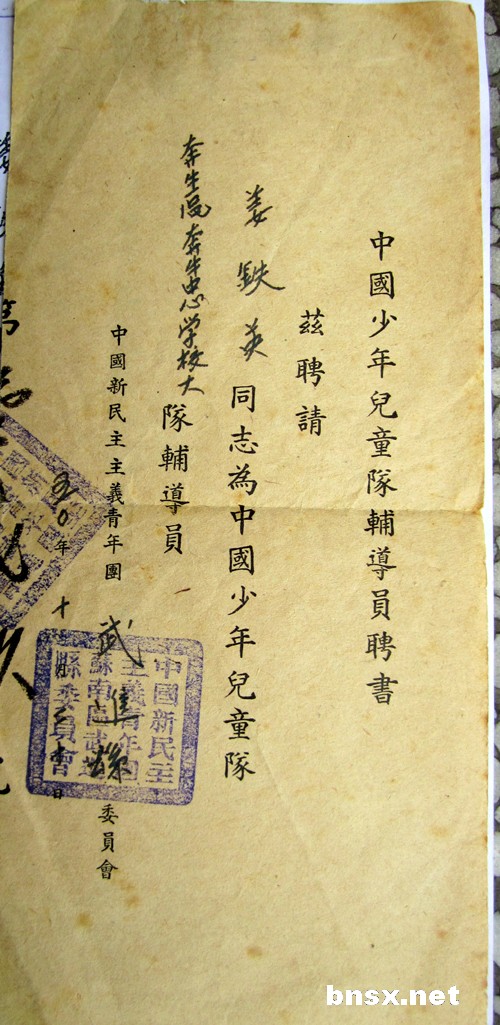 中國少年兒童隊輔導員聘書
茲聘請
姜鉄英同志為中國少年兒童隊
奔牛區奔牛中心学校大隊輔導員
中國新民主主義青年團武進縣委員會
五〇年十月三十日
中國新民主
主義青年團
蘇南區武進
縣委員會
bnsx.net